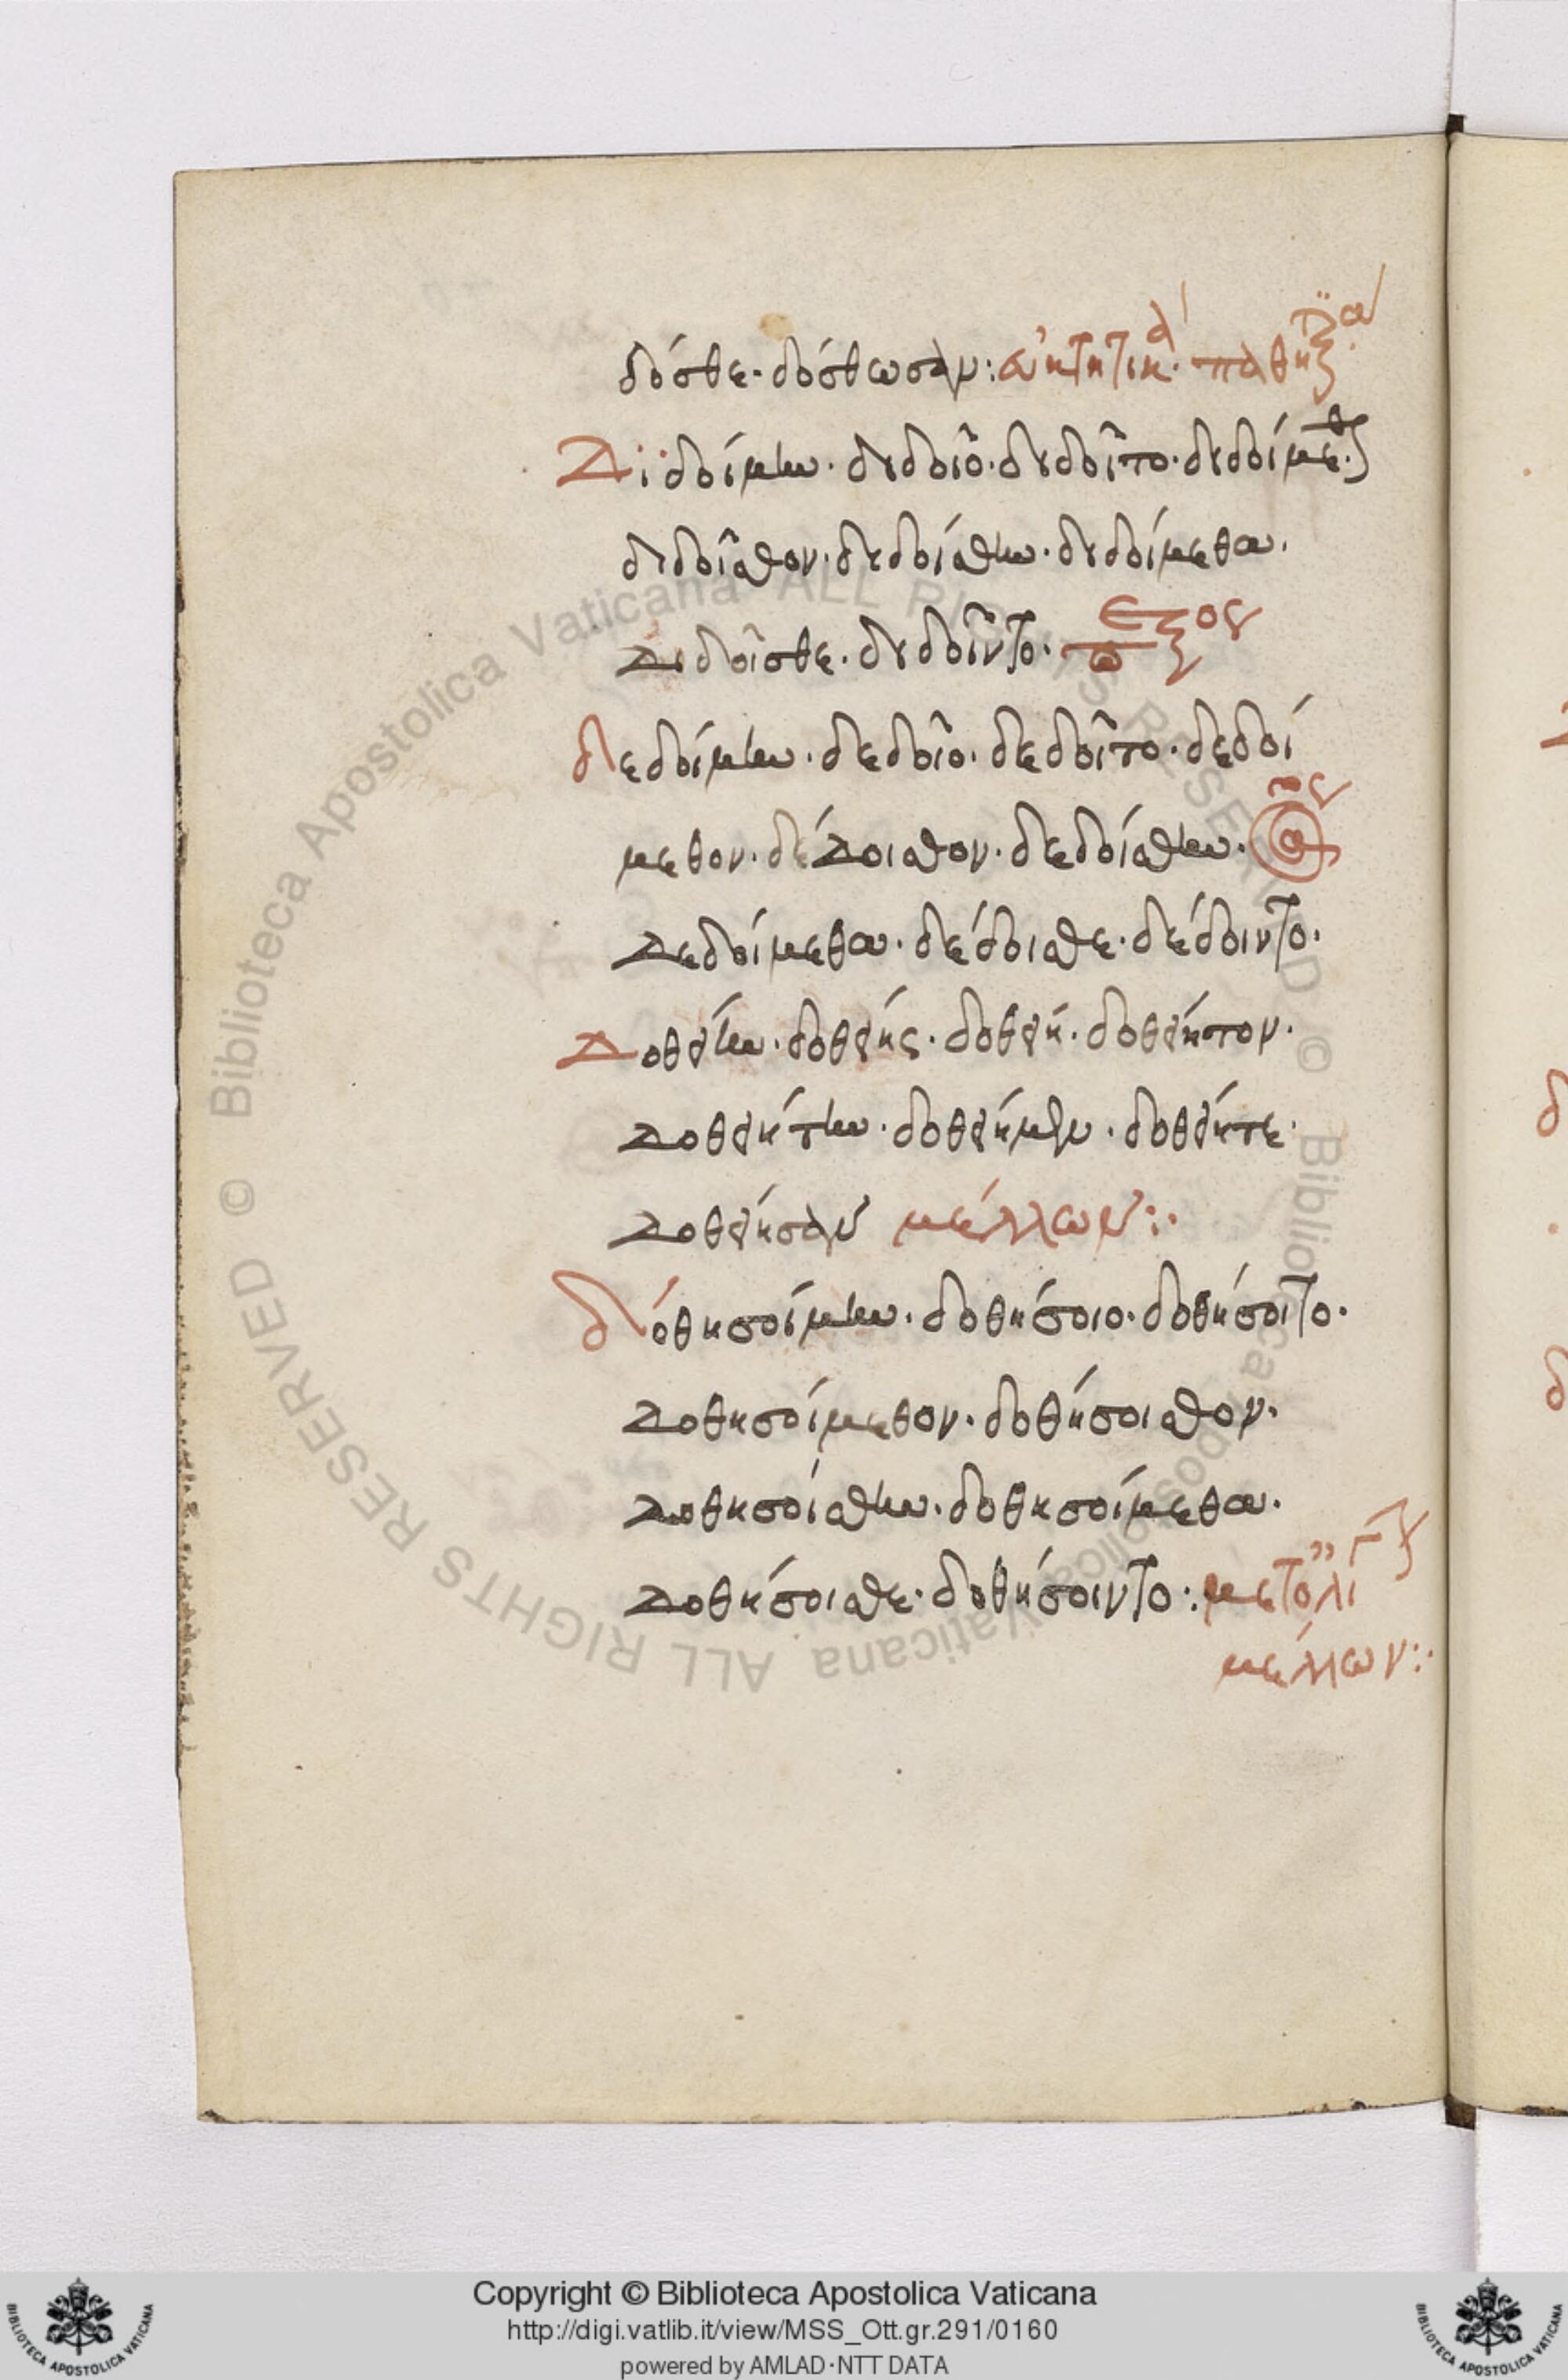 δόσθε. δόσθωσαν: εὐκτητικὰ. παθη
Διδοίμην. διδοῖο. διδοῖτο. διδοίμεθ
διδοῖσθον. διδοίσθην. διδοίμεθα.
διδοῖσθε. διδοῖντο.
δεδοίμην. δεδοῖο. δεδοῖτο. δεδοί
μεθον. δέδοισθον. δεδοίσθην.
δεδοίμεθα. δέδοισθε. δέδοιντο.
Δοθείην. δοθείης. δοθείη. δοθείητον.
δοθειήτην. δοθείημεν. δοθείητε.
δοθείησαν μέλλων:
δοθησοίμην. δοθήσοιο. δοθήσοιτο.
δοθησοίμεθον. δοθήσοισθον.
δοθησοίσθην. δοθησοίμεθα.
δοθήσοισθε. δοθήσοιντο: μετολί
μέλλων:
Biblioteca Apostolica Vaticana ALL RIGHTS RESERVED ©
Copyright © Biblioteca Apostolica Vaticana
http://digi.vatlib.it/view/MSS_Ott.gr.291/0160
powered by AMLAD·NTT DATA
BIBLIOTECA APOSTOLICA VATICANA
BIBLIOTECA APOSTOLICA VATICANA